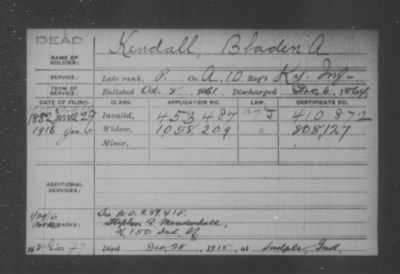 DEAD
NAME OF SOLDIER: Kendall, Bladen A
SERVICE: Late rank, P. Co. A, 10 Reg't Ky. Inf
TERM OF SERVICE: Enlisted Oct. 8, 1861 Discharged Dec. 6, 1864
DATE OF FILING. CLASS. APPLICATION NO. LAW. CERTIFICATE NO.
1882 29 Invalid, 453 487 410 872
1916 Jan. 5 Widow, 1058 209 808127
Minor,
ADDITIONAL SERVICES:
REMARKS: W.O. 289415
Stephen A. Mendenhall,
K 150 Ind. Inf
Died Dec. 28, 1915, at Ind.